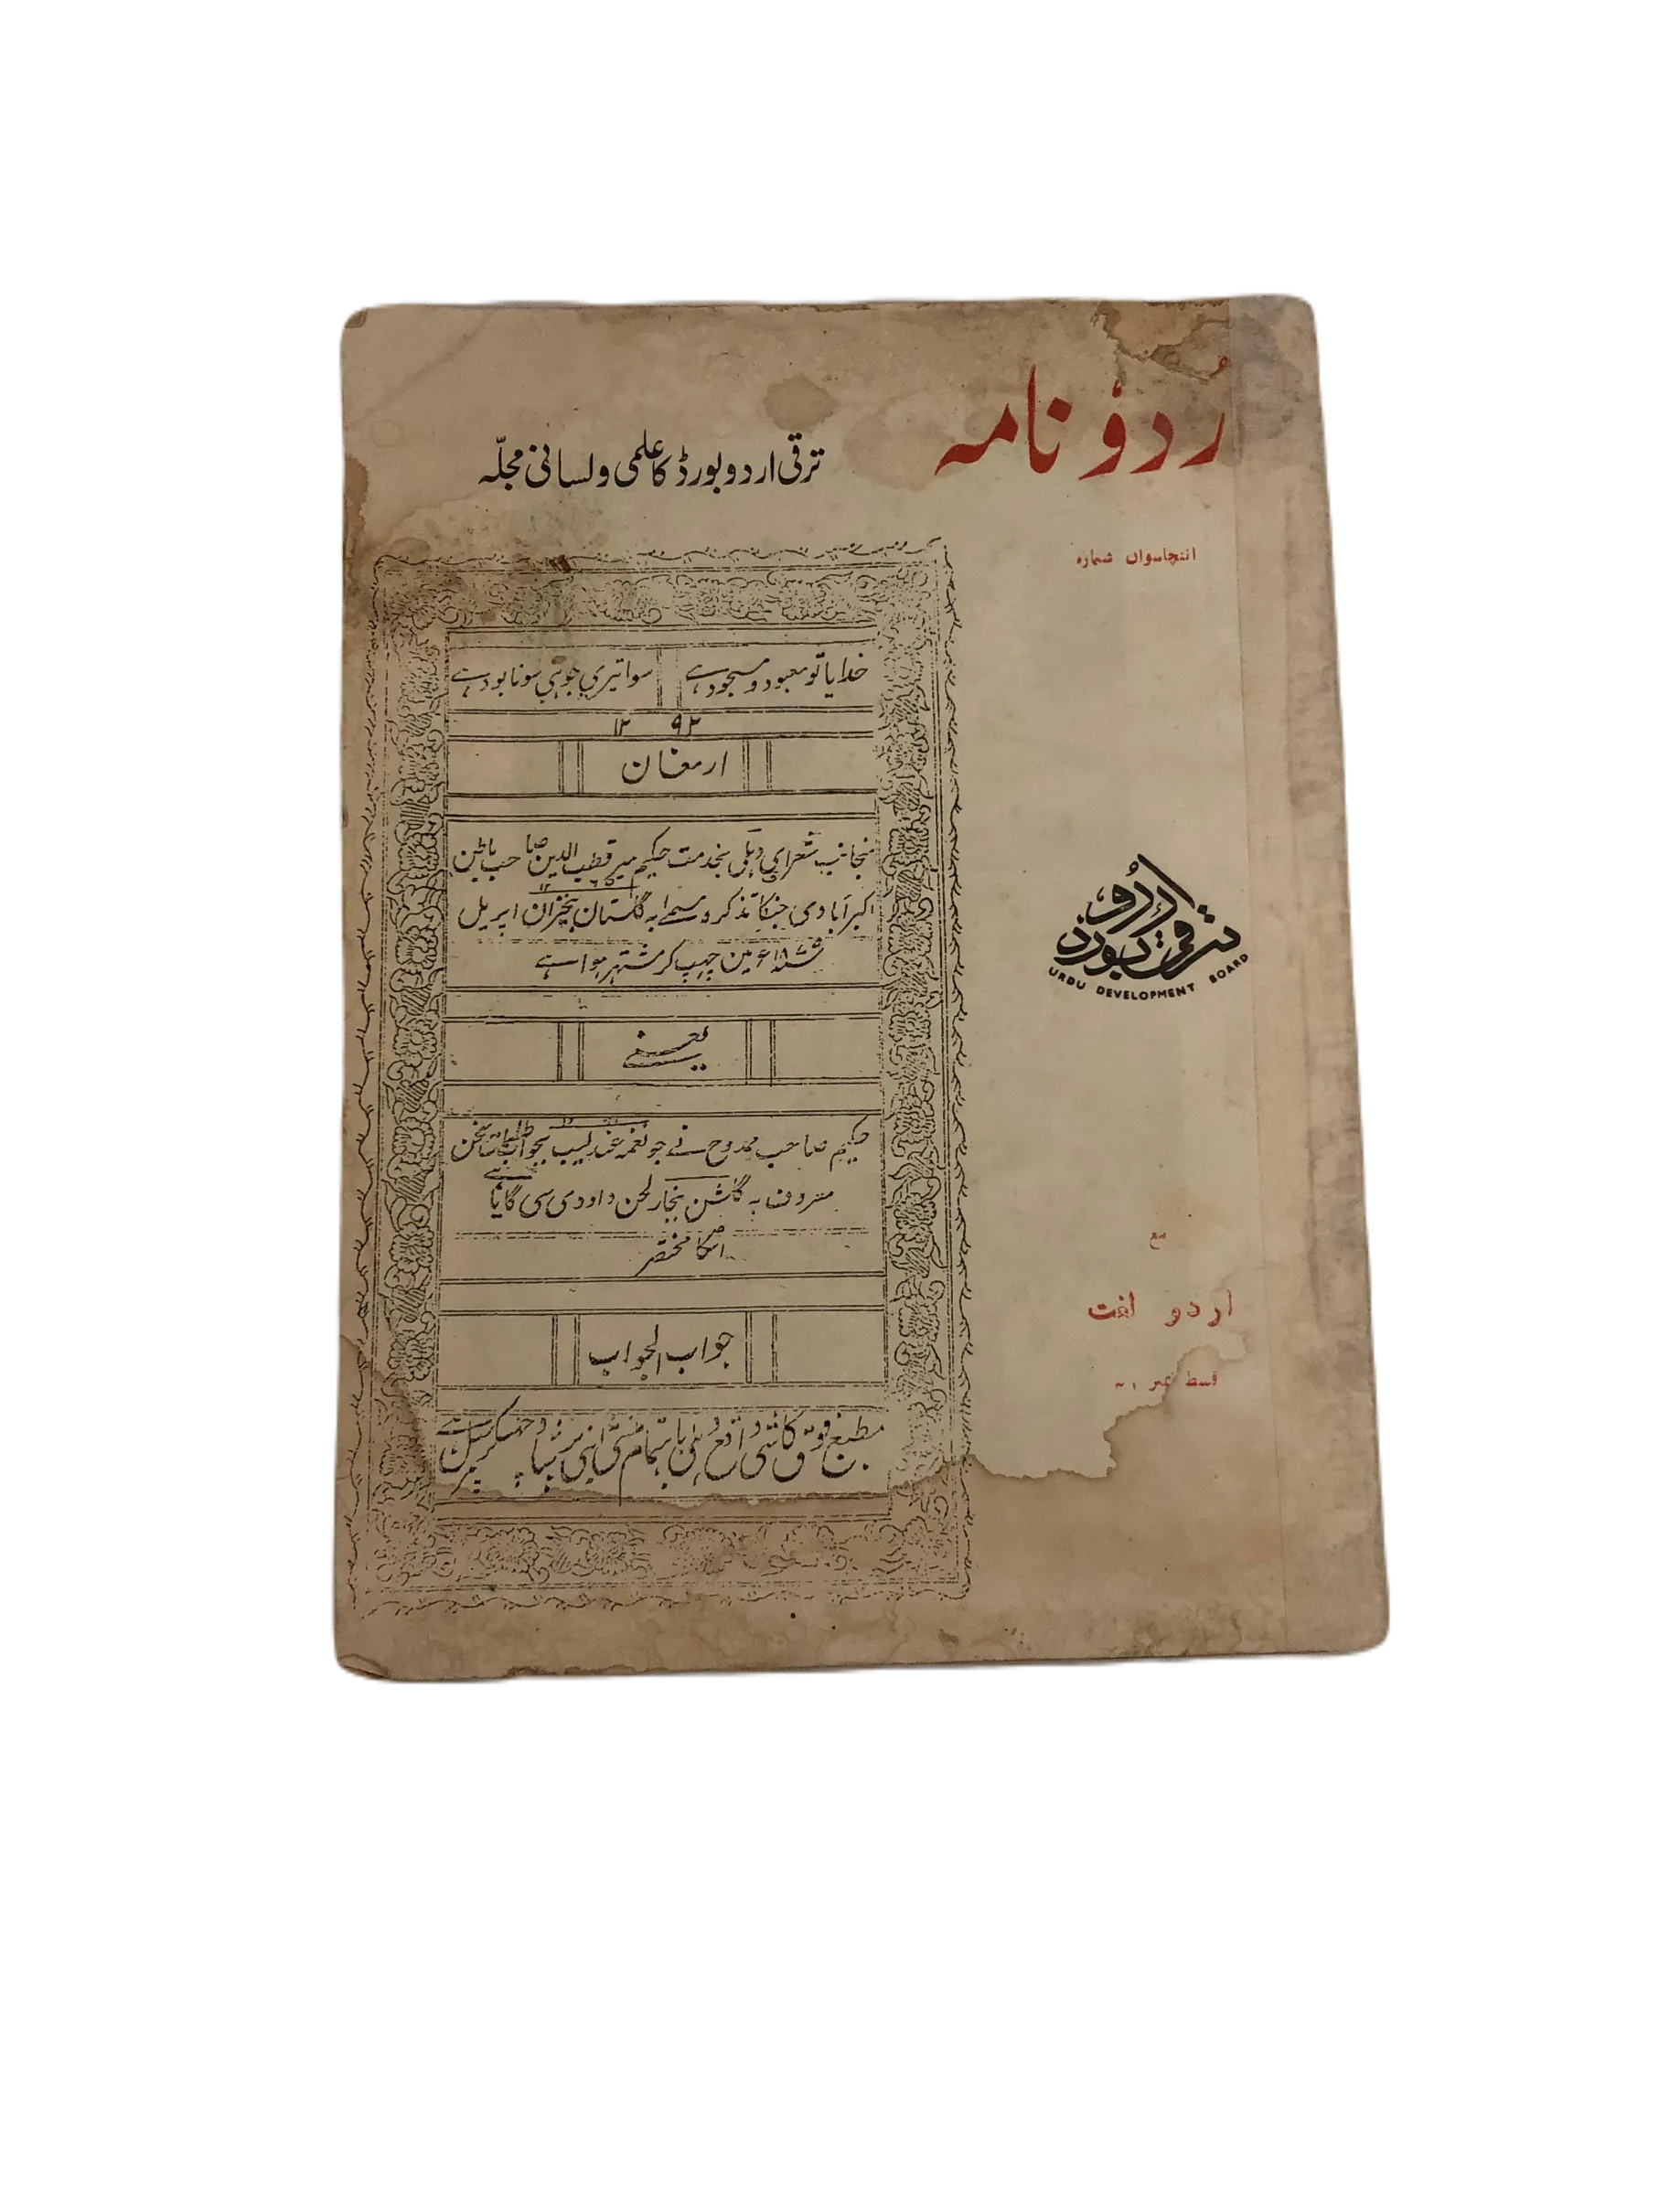 اُردو نامہ
ترقی اردو بورڈ کا علمی و لسانی مجلّہ
انتچاسواں شمارہ
خدایا تو معبود و مسجود ہے سوا تیری جو ہی سو نابود ہے
۱۲ ۹۲
ارمغان
منجانب شعرای دہلی بخدمت حکیم میر قطب الدین صاحب باطن
اکبرآبادی جنکا تذکرہ مسمے بہ گلستان بیخزان اپریل
۱۸۷۵ء مین چھپ کر مشتہر ہوا ہے
یعنے
حکیم صاحب ممدوح نے جو نغمہ عندلیب بجواب سخن
معروف بہ گلشن بیخار لحن داودی سی گایا
اسکا مختصر
جواب الجواب
مطبع فوق کاشی واقع دہلی باہتمام منشی
ترقی اردو بورڈ
URDU DEVELOPMENT BOARD
مع
اردو لغت
قسط نمبر